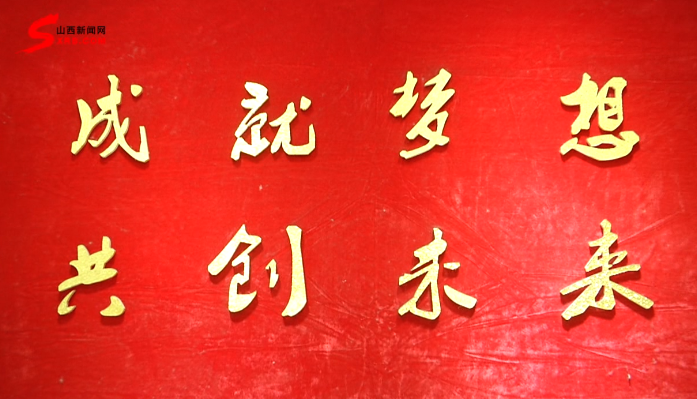 山西新闻网
成就梦想
共创未来